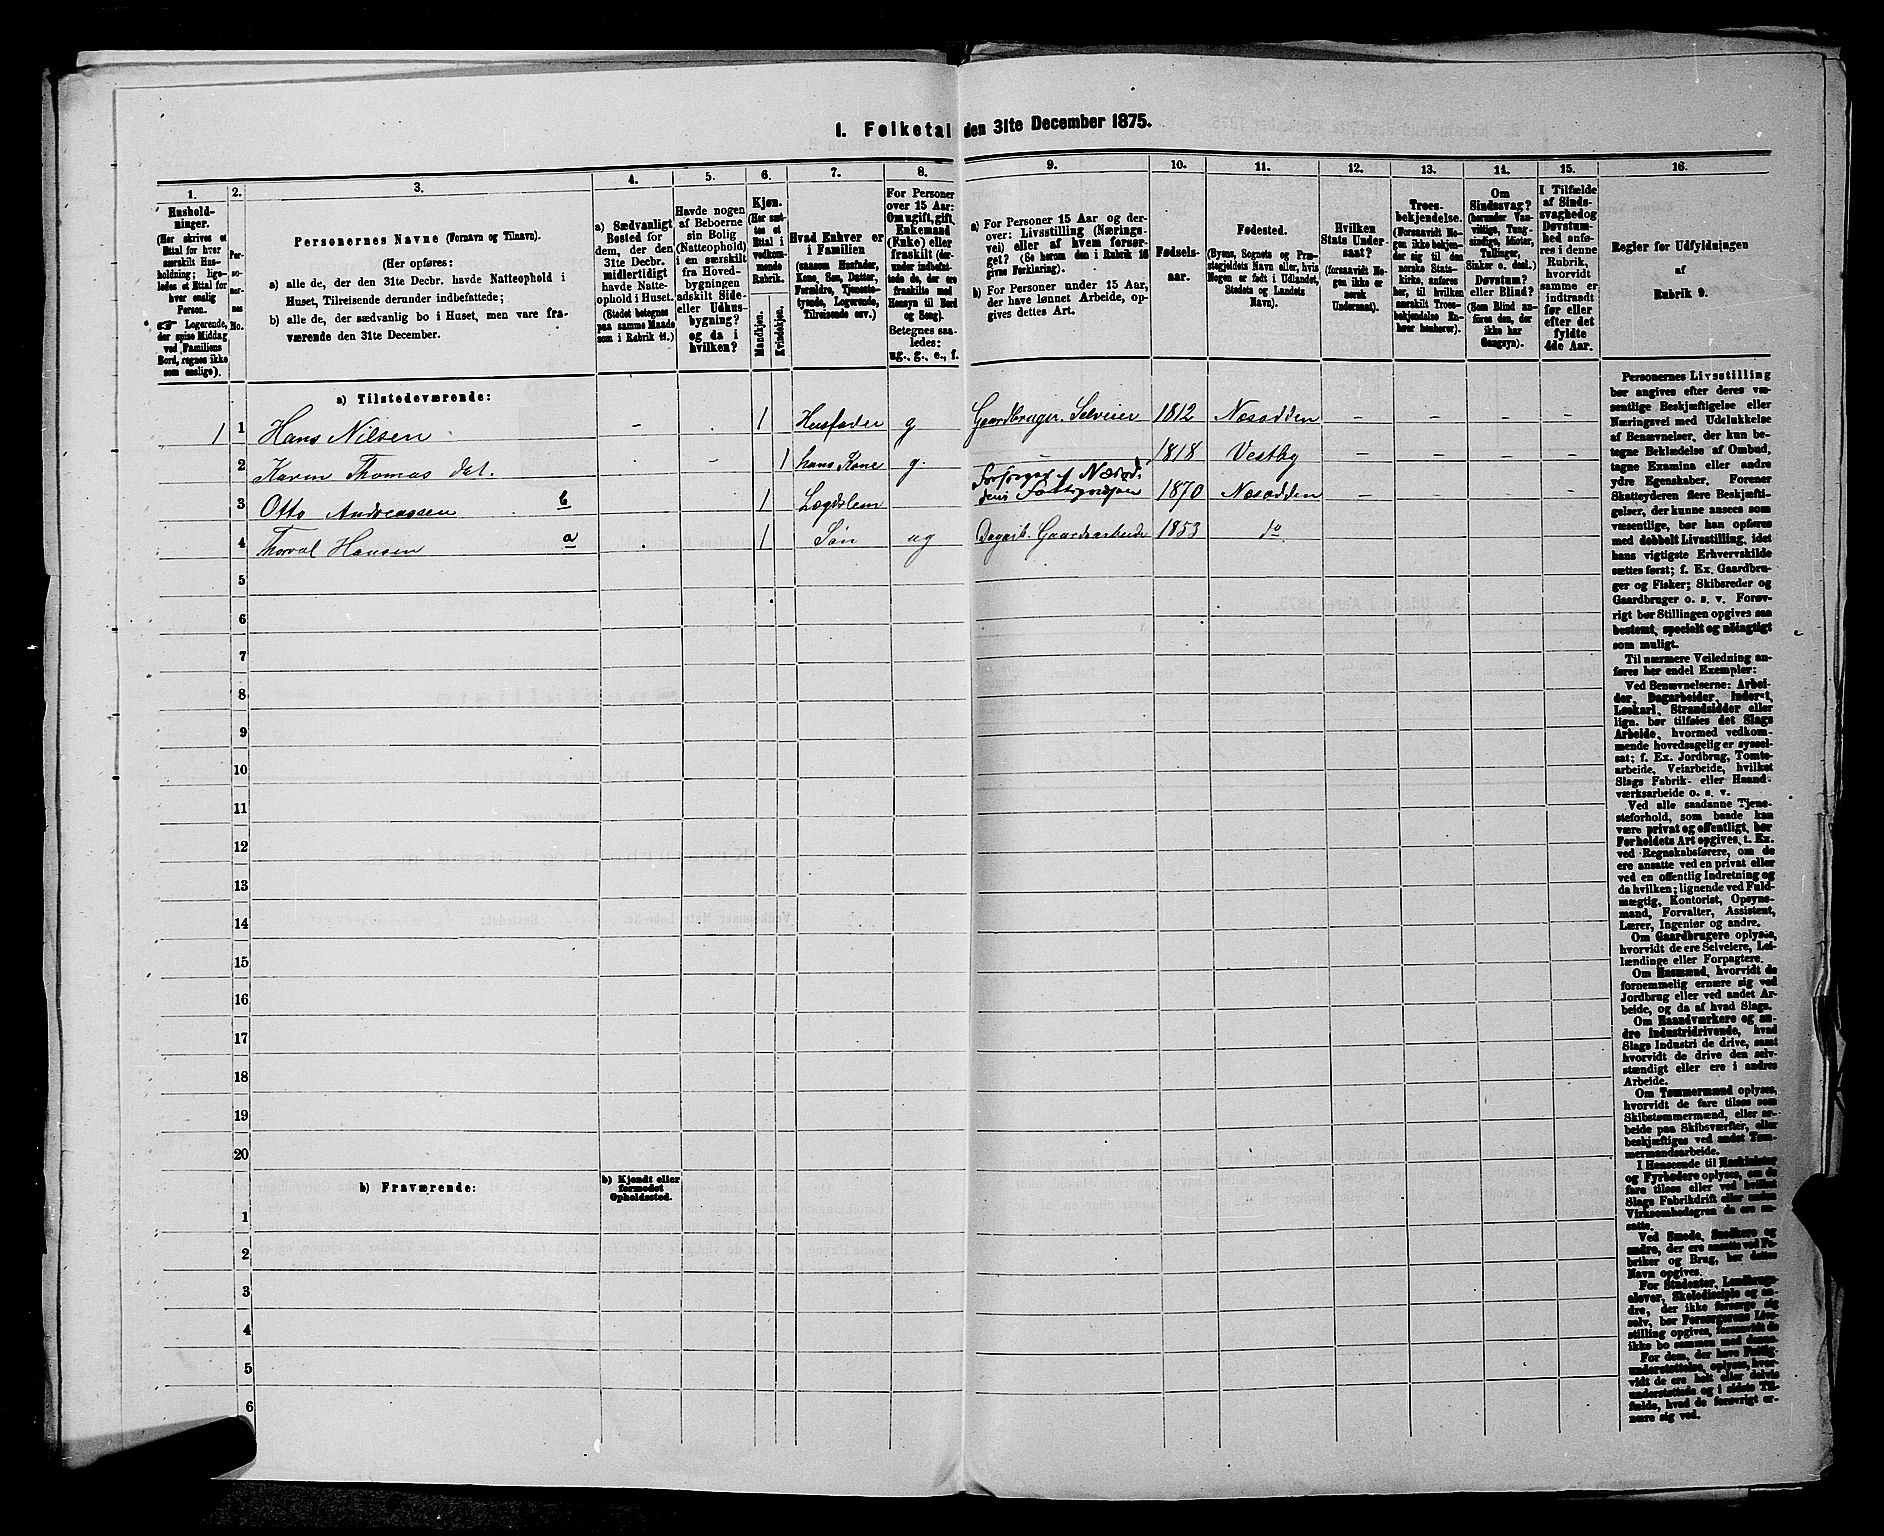 1. Folketal den 31te December 1875.
1.
2.
3.
4.
5.
6.
7.
8.
9.
10.
11.
12.
13.
14.
15.
16.
Hushold-
ninger.
(Her skrives et
Ettal for hver
særskilt Hus-
holdning; lige-
ledes et Ettal for
hver enslig
Person.
☞ Logerende,
der spise Middag
ved Familiens
Bord, regnes ikke
som enslige).
Per-
so-
ner-
nes
No.
Personernes Navne (Fornavn og Tilnavn).
(Her opføres:
a) alle de, der den 31te Decbr. havde Natteophold i
Huset, Tilreisende derunder indbefattede;
b) alle de, der sædvanlig bo i Huset, men vare fra-
værende den 31te December.
a) Sædvanligt
Bosted for
dem, der den
31te Decbr.
midlertidigt
havde Natte-
ophold i Huset.
(Stedet betegnes
paa samme Maade
som i Rubrik 11.)
Havde nogen
af Beboerne
sin Bolig
(Natteophold)
i en særskilt
fra Hoved-
bygningen
adskilt Side-
eller Udhus-
bygning?
og da i
hvilken?
Kjøn.
(Her sæt-
tes et
Ettal i
vedkom-
mende
Rubrik.
Mandkjøn.
Kvindekjøn.
Hvad Enhver er
i Familien
(saasom Husfader,
Kone, Søn, Datter,
Forældre, Tjeneste-
tyende, Logerende,
Tilreisende osv.)
For Personer
over 15 Aar:
Om ugift, gift,
Enkemand
(Enke) eller
fraskilt (der-
under indbefat-
tede de, der ere
fraskilte med
Hensyn til Bord
og Seng).
Betegnes saa-
ledes:
ug., g., e., f.
a) For Personer 15 Aar og der-
over: Livsstilling (Nærings-
vei) eller af hvem forsør-
get? (Se herom den i Rubrik 16
givne Forklaring).
b) For Personer under 15 Aar,
der have lønnet Arbeide, op-
gives dettes Art.
Fødsels-
aar.
Fødested.
(Byens, Sognets og Præ-
stegjeldets Navn eller, hvis
Nogen er født i Udlandet,
Stedets og Landets
Navn).
Hvilken
Stats Under-
saat?
(forsaavidt No-
gen ikke er
norsk
Undersaat).
Troes-
bekjendelse.
(Forsaavidt No-
gen ikke bekjen-
der sig til den
norske Stats-
kirke, anføres
her, til hvilken
særskilt Troes-
bekjendelse En-
hver henhører).
Om
Sindssvag?
(herunder Van-
vittige, Tung-
sindige, Idioter,
Tullinger,
Sinker o. desl.)
Døvstum?
eller Blind?
(Som Blind an-
føres den, der
ikke har
Gangsyn).
I Tilfælde
af Sinds-
svaghed og
Døvstum-
hed anfø-
res i denne
Rubrik,
hvorvidt
samme er
indtraadt
før eller
efter det
fyldte
4de Aar.
Regler for Udfyldningen
af
Rubrik 9.
a) Tilstedeværende:
1 1 Hans Nilsen - . 1 Husfader g Gaardbruger. Selveier 1812 Næsodden - - - -
2 Karen Thomas dat. - 1 hans Kone g. - 1818 Vestby - - - -
3 Otto Andreassen b 1 Lægdslem 1870 Næsodden - -
4 Thorval Hansen a 1 Søn ug Dagarb. Gaardsarbeide 1853 do
5
6
7
8
9
10
11
12
13
14
15
16
17
18
19
20
b) Fraværende:
b) Kjendt eller
formodet
Opholdssted.
1
2
3
4
5
6
Personernes Livsstilling
bør angives efter deres væ-
sentlige Beskjæftigelse eller
Næringsvei med Udelukkelse
af Benævnelser, der kun be-
tegne Beklædelse af Ombud,
tagne Examina eller andre
ydre Egenskaber. Forener
Skatteyderen flere Beskjæfti-
gelser, der kunne ansees som
væsentlige, bør han opføres
med dobbelt Livsstilling, idet
hans vigtigste Erhvervskilde
sættes først; f. Ex. Gaardbru-
ger og Fisker; Skibsreder og
Gaardbruger o. s. v. Forøv-
rigt bør Stillingen opgives saa
bestemt, specielt og nøiagtigt
som muligt.
Til nærmere Veiledning an-
føres her endel Exempler:
Ved Benævnelserne: Arbei-
der, Dagarbeider, Inderst,
Løskarl, Strandsidder eller
lign. bør tilføies det Slags
Arbeide, hvormed vedkom-
mende hovedsagelig er syssel-
sat; f. Ex. Jordbrug, Tomte-
arbeide, Veiarbeide, hvilket
Slags Fabrik- eller Haand-
værksarbeide o. s. v.
Ved alle saadanne Tjene-
steforhold, som baade kan
være privat og offentligt, bør
Forholdets Art opgives, t. Ex.
ved Regnskabsførere, om de
ere ansatte ved en privat eller
ved en offentlig Indretning og
da hvilken; lignende ved Fuld-
mægtig, Kontorist, Opsyns-
mand, Forvalter, Assistent,
Lærer, Ingeniør og andre.
Om Gaardbrugere oplyses,
hvorvidt de ere Selveiere, Lei-
lændinge eller Forpagtere.
Om Husmænd, hvorvidt de
fornemmelig ernære sig ved
Jordbrug eller ved andet Ar-
beide, og da af hvad Slags.
Om Haandværkere og an-
dre Industridrivende, hvad
Slags Industri de drive, samt
hvorvidt de drive den selv-
stændigt eller ere i andres
Arbeide.
Om Tømmermænd oplyses,
hvorvidt de fare tilsøs som
Skibstømmermænd, eller ar-
beide paa Skibsværfter, eller
beskjæftiges ved andet Tøm-
mermandsarbeide.
I Henseende til Maskinister
og Fyrbødere oplyses, om de
fare tilsøs eller ved hvilket
Slags Fabrikdrift eller anden
Virksomhedsgren de ere an-
satte.
Ved Smede, Snedkere og
andre, der ere ansatte ved Fa-
briker og Brug, bør dettes
Navn opgives.
For Studenter, Landbrugs-
elever, Skoledisciple og an-
dre, der ikke forsørge sig
selv, bør Forsørgerens Liv-
stilling opgives, forsaavidt de
ikke bo sammen med denne.
For dem, der have Fattig-
understøttelse, oplyses, hvor-
vidt de ere helt eller delvis
understøttede og i sidste Til-
fælde, hvad de forøvrigt er-
nære sig ved.